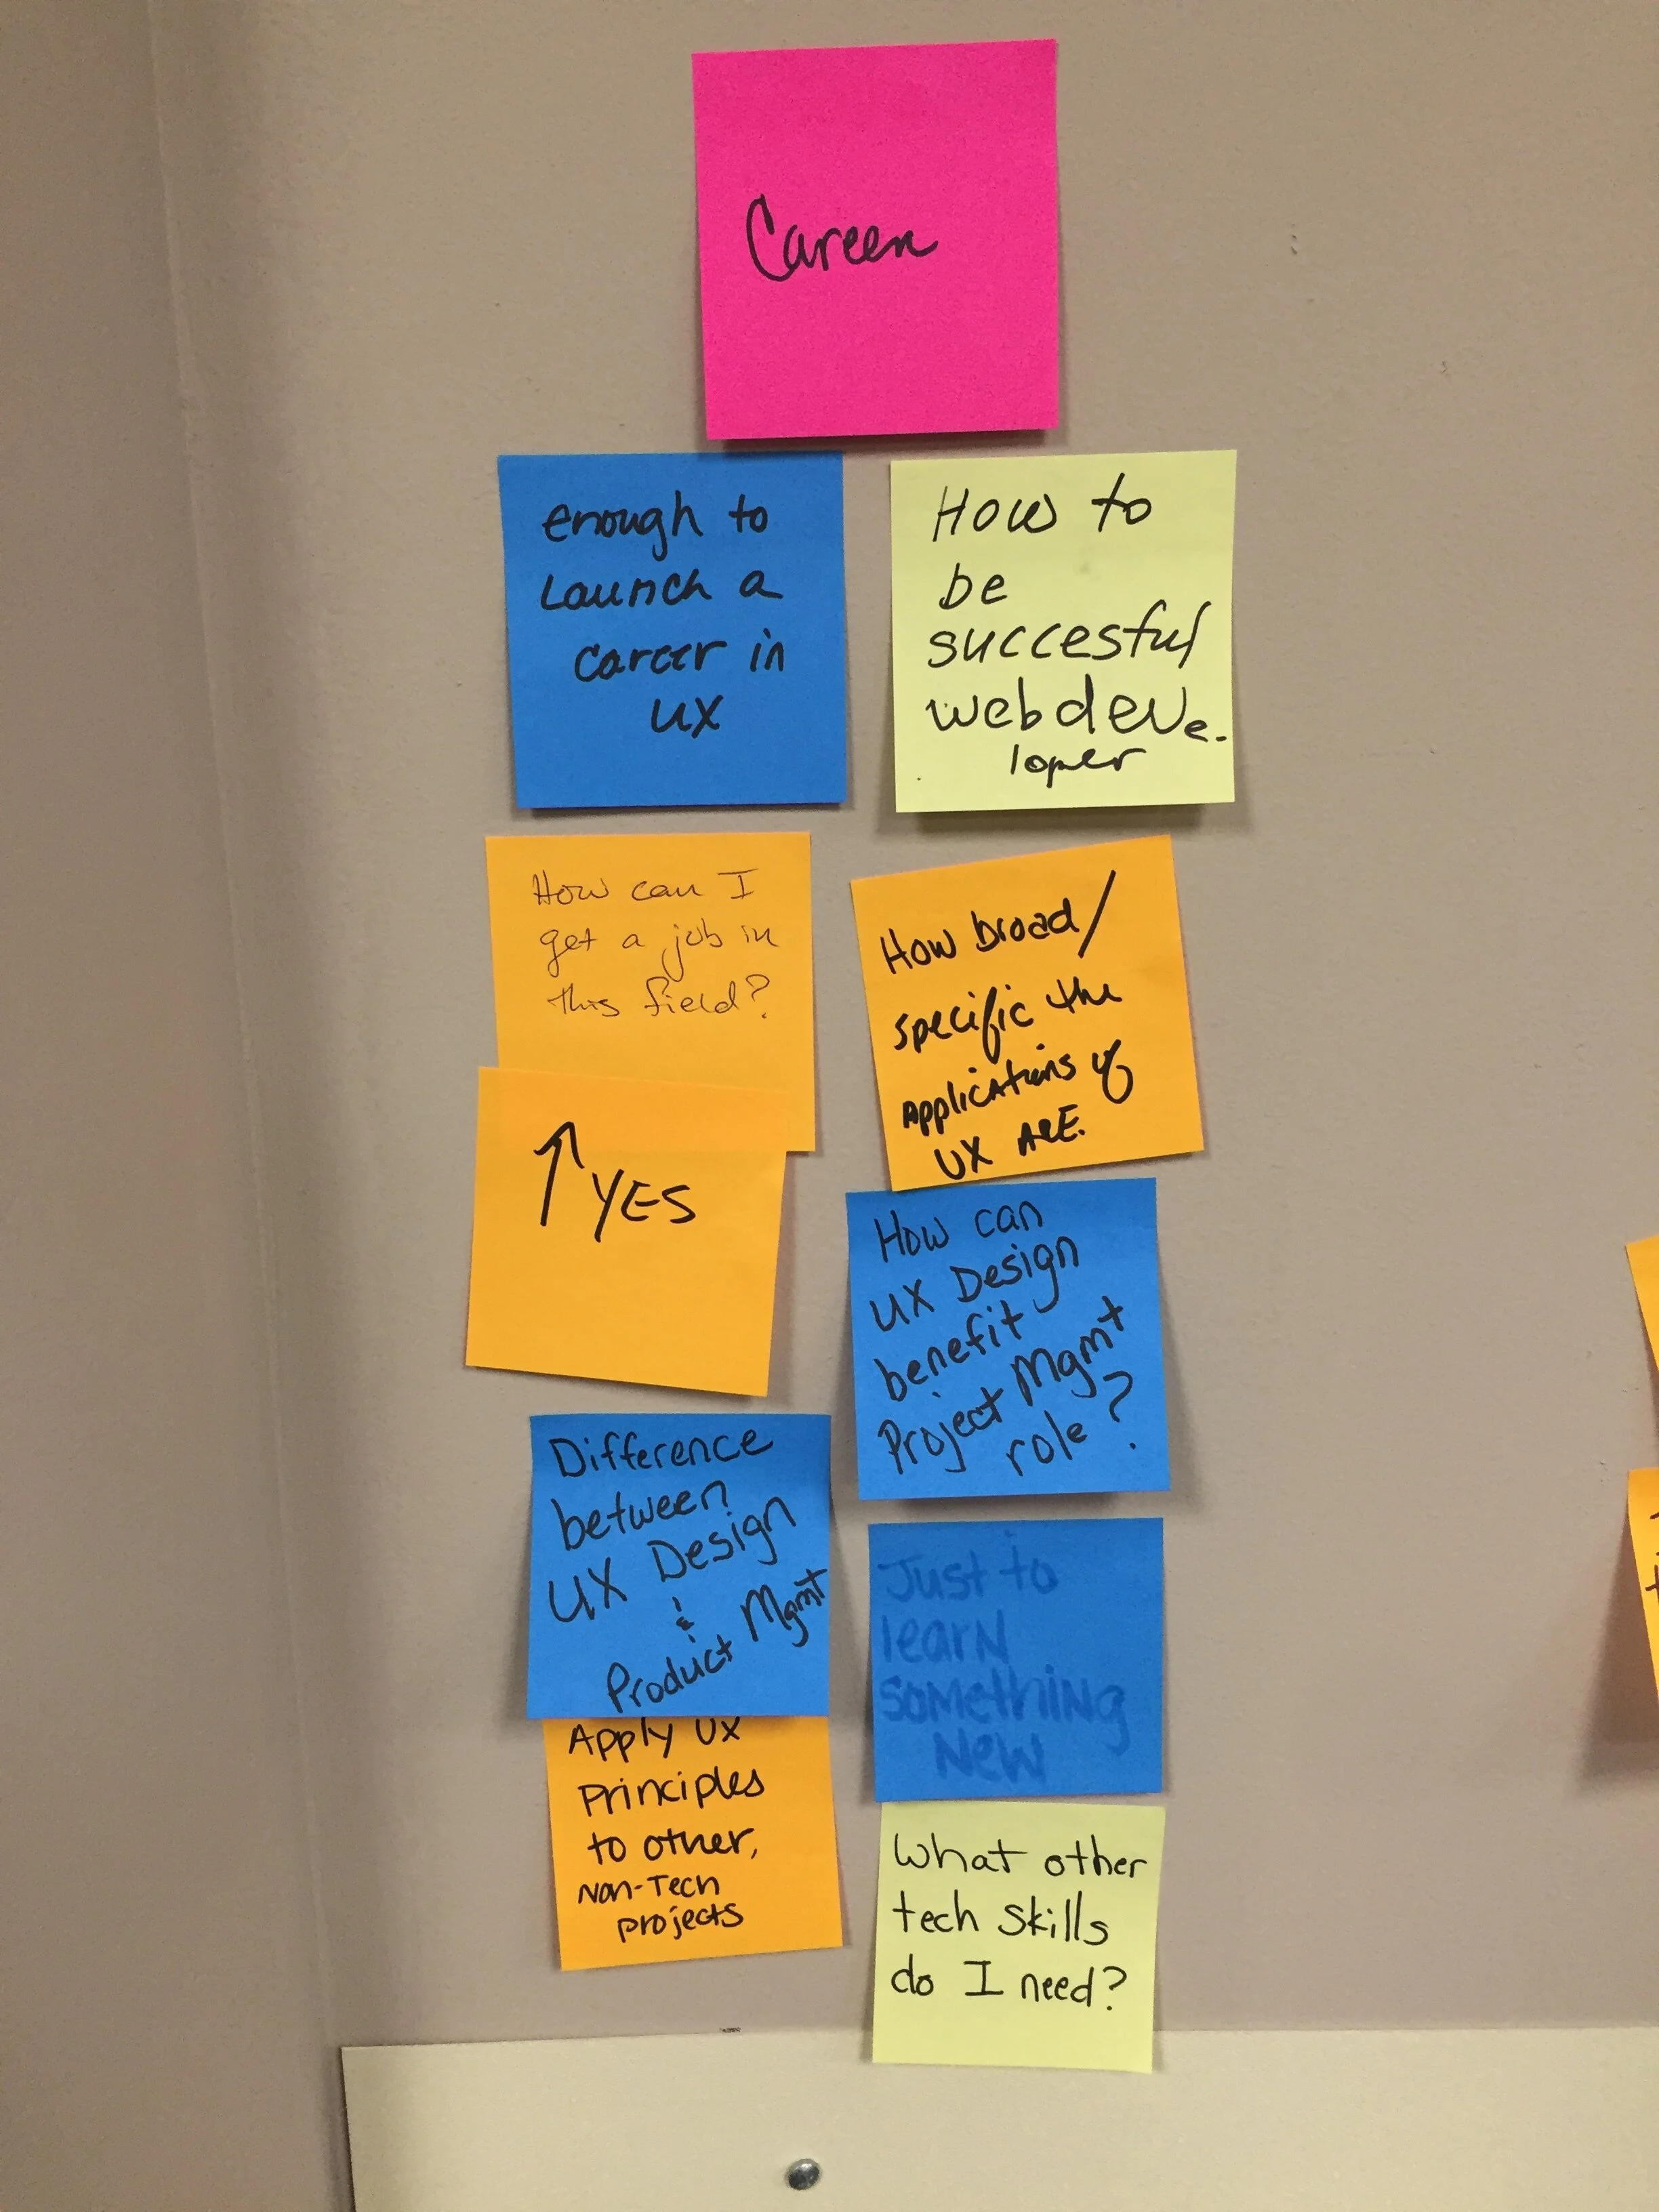 Career
enough to
Launch a
career in
UX
How to
be
succesful
webdeve-
loper
How can I
get a job in
this field?
↑ YES
How broad/
specific the
applications of
UX ARE.
How can
UX Design
benefit
Project Mgmt
role?
Difference
between
UX Design
&
Product Mgmt
Just to
learn
something
New
Apply UX
Principles
to other,
Non-Tech
projects
What other
tech skills
do I need?